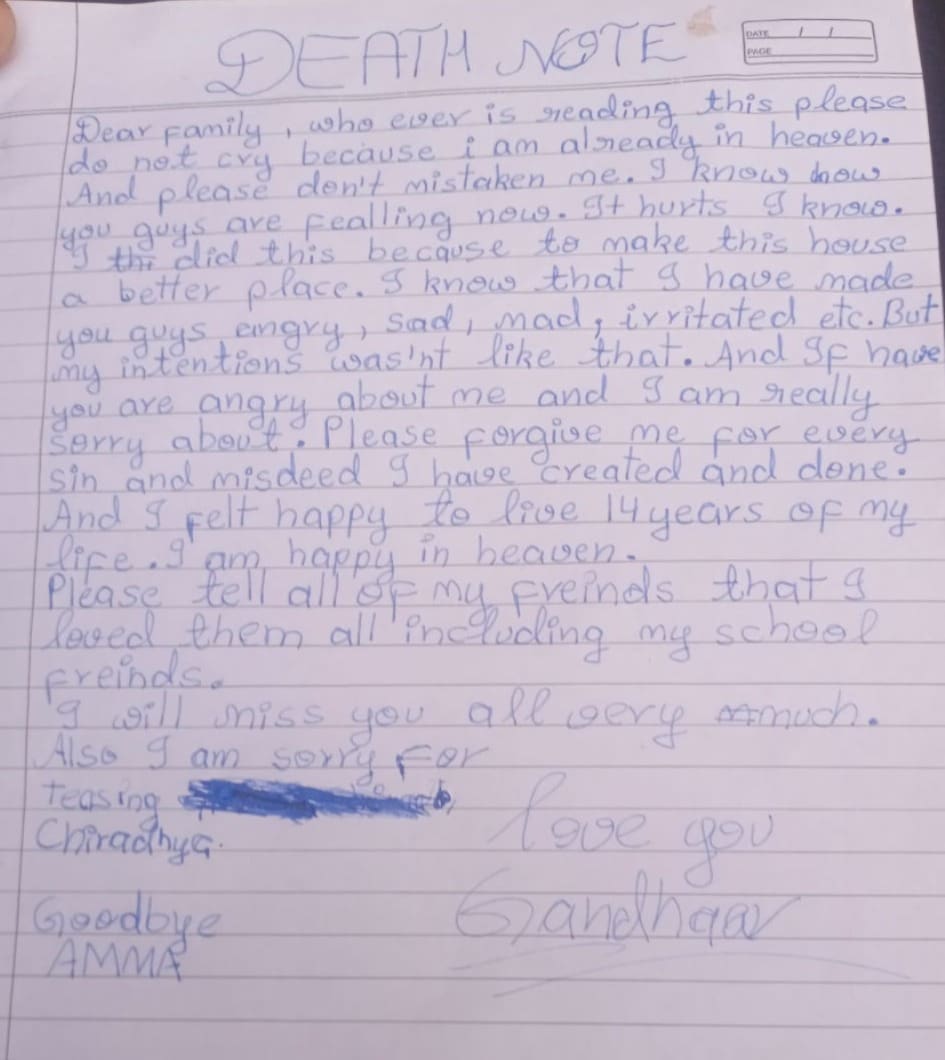 DEATH NOTE
DATE / /
PAGE
Dear Family, who ever is reading this please
do not cry because i am already in heaven.
And please don't mistaken me. I know how
you guys are fealling now. It hurts I know.
I did this because to make this house
a better place. I know that I have made
you guys angry, sad, mad, irritated etc. But
my intentions was'nt like that. And If have
you are angry about me and I am really
sorry about. Please forgive me for every
sin and misdeed I have created and done.
And I felt happy to live 14 years of my
life. I am happy in heaven.
Please tell all of my freinds that I
loved them all including my school
freinds.
I will miss you all very much.
Also I am sorry for
teasing
Chiradhya.
love you
Goodbye
Gandhaar
AMMA